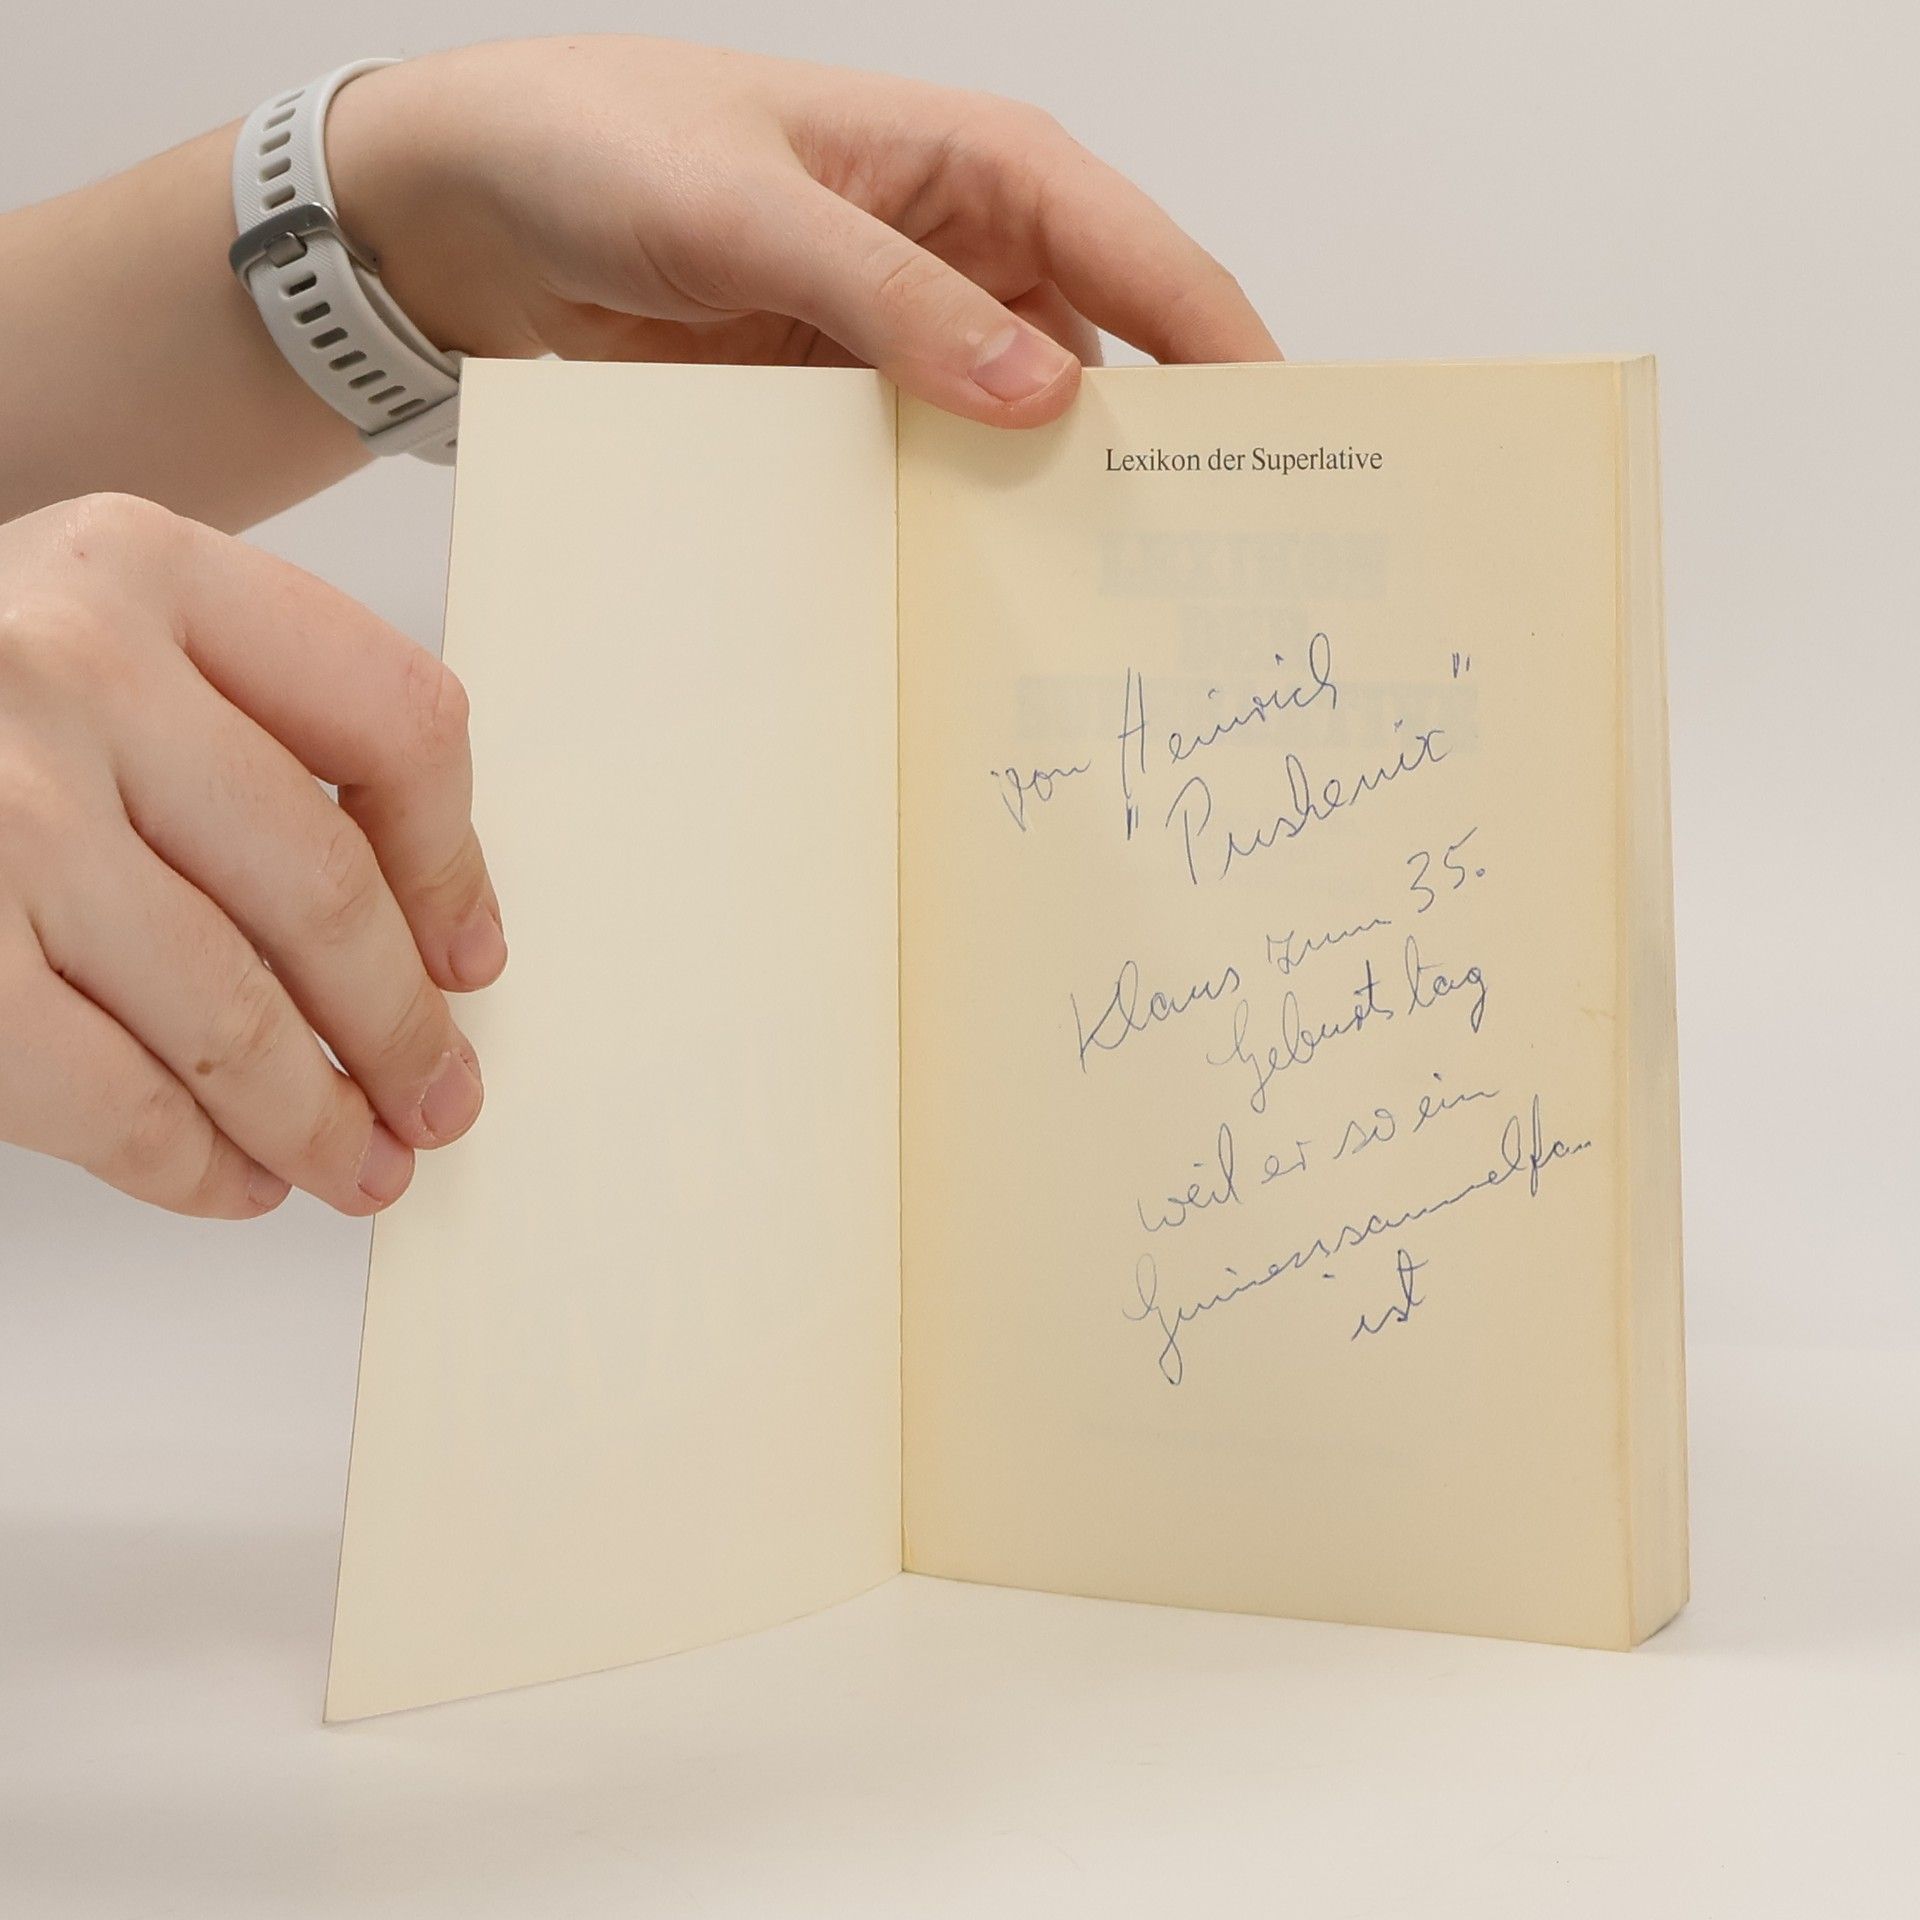 Lexikon der Superlative
von Heinrich
"Puskenix"
Klaus zum 35.
Geburtstag
weil er so ein
ist